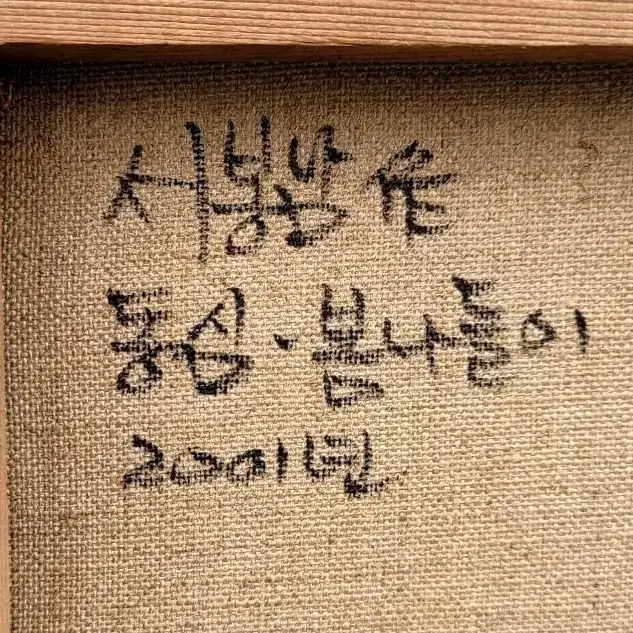 서봉남 作
동심·봄나들이
2001년